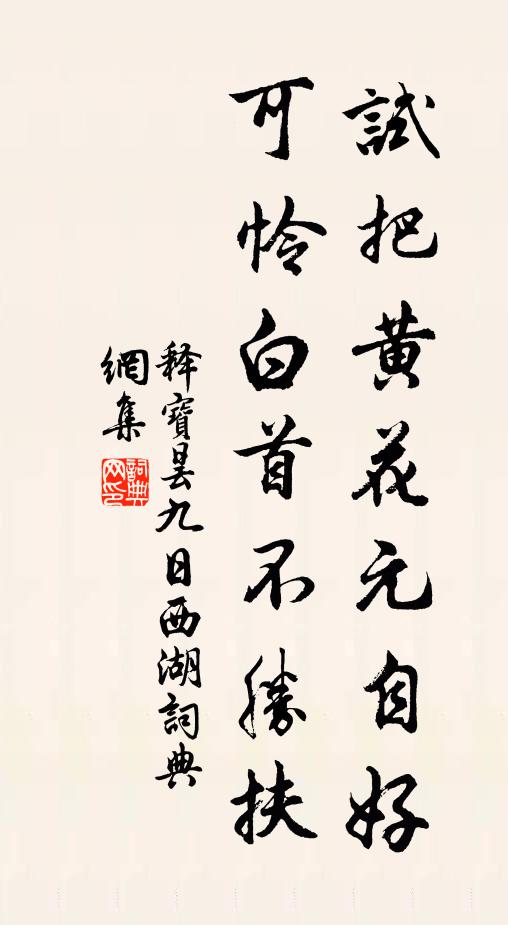 試把黄花元自好
可怜白首不勝扶
释寶曇九日西湖詞典
網集
詞典网印